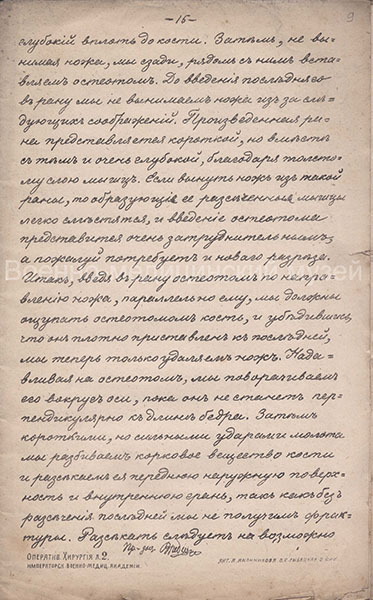 —16—
9
глубокій вплоть до кости. Затѣмъ, не вы-
нимая ножа, мы сзади, рядомъ съ нимъ вста-
вляемъ остеотомъ. До введенія послѣдняго
въ рану мы не вынимаемъ ножа изъ за слѣ-
дующихъ соображеній. Произведенная ра-
на представляется короткой, но вмѣстѣ
съ тѣмъ и очень глубокой, благодаря толсто-
му слою мышцъ. Если вынуть ножъ изъ такой
раны, то образующіе ее разсѣченныя мышцы
легко смѣстятся, и введеніе остеотома
представится очень затруднительнымъ,
а пожалуй потребуетъ и новаго разрѣза.
Итакъ, введя въ рану остеотомъ по напра-
вленію ножа, параллельно ему, мы должны
ощупать остеотомомъ кость, и убѣдившись,
что онъ плотно приставленъ къ послѣдней,
мы теперь только удаляемъ ножъ. Нада-
вливая на остеотомъ, мы поворачиваемъ
его вокругъ оси, пока онъ не станетъ пер-
пендикулярно къ длинѣ бедра. Затѣмъ
короткими, но сильными ударами молота
мы разбиваемъ корковое вещество кости
и разсѣкаемъ ея переднюю наружную поверх-
ность и внутреннюю грань, такъ какъ безъ
разсѣченія послѣдней мы не получимъ фрак-
туры. Разсѣкать слѣдуетъ на возможно
Оператив. Хирургія л. 2.
Императорск. Военно-Медиц. Академіи
Военно-медицинский музей